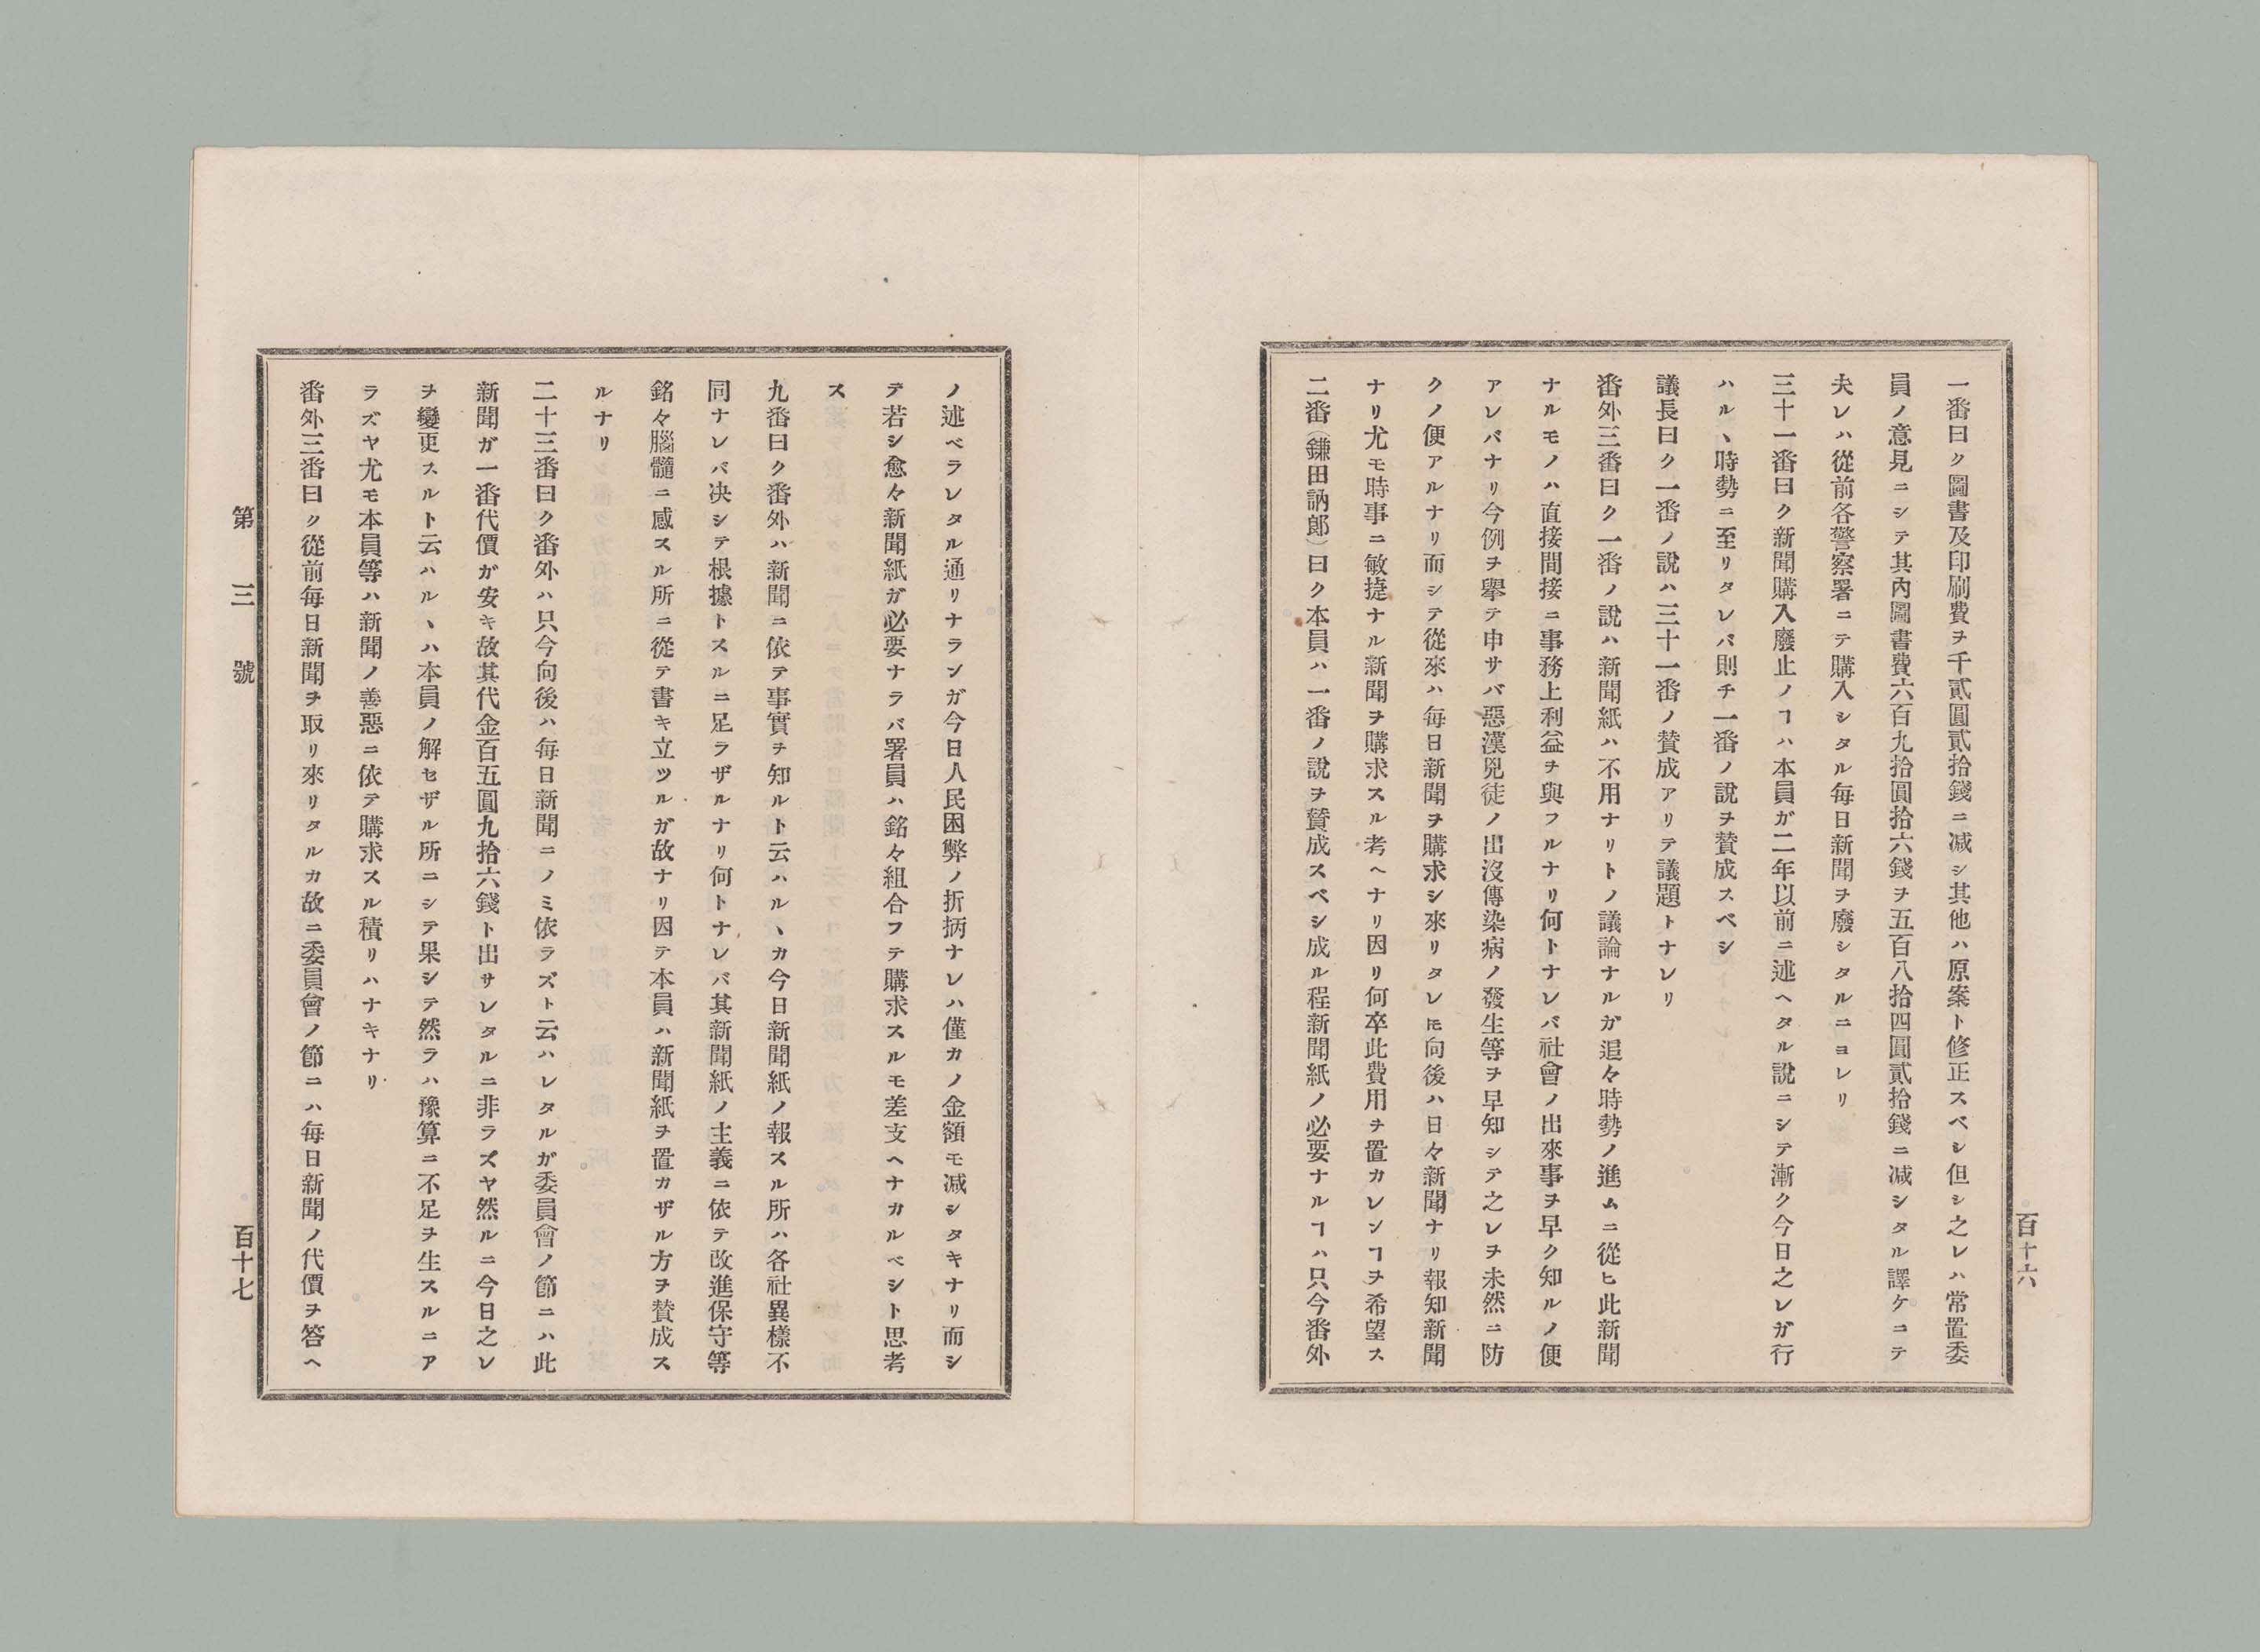 百十六
一番曰ク圖書及印刷費ヲ千貳圓貳拾錢ニ减シ其他ハ原案ト修正スベシ但シ之レハ常置委
員ノ意見ニシテ其內圖書費六百九拾圓拾六錢ヲ五百八拾四圓貳拾錢ニ减シタル譯ケニテ
夫レハ從前各警察署ニテ購入シタル每日新聞ヲ廢シタルニヨレリ
三十一番曰ク新聞購入廢止ノヿハ本員ガ二年以前ニ述ヘタル說ニシテ漸ク今日之レガ行
ハルヽ時勢ニ至リタレバ則チ一番ノ說ヲ賛成スベシ
議長曰ク一番ノ說ハ三十一番ノ賛成アリテ議題トナレリ
番外三番曰ク一番ノ說ハ新聞紙ハ不用ナリトノ議論ナルガ追々時勢ノ進ムニ從ヒ此新聞
ナルモノハ直接間接ニ事務上利益ヲ與フルナリ何トナレバ社會ノ出來事ヲ早ク知ルノ便
アレバナリ今例ヲ擧テ申サバ惡漢兇徒ノ出沒傳染病ノ發生等ヲ早知シテ之レヲ未然ニ防
クノ便アルナリ而シテ從來ハ每日新聞ヲ購求シ來リタレ𪜈向後ハ日々新聞ナリ報知新聞
ナリ尤モ時事ニ敏捷ナル新聞ヲ購求スル考ヘナリ因リ何卒此費用ヲ置カレンヿヲ希望ス
二番（鎌田訥郎）曰ク本員ハ一番ノ說ヲ賛成スベシ成ル程新聞紙ノ必要ナルヿハ只今番外
ノ述ベラレタル通リナランガ今日人民困弊ノ折柄ナレハ僅カノ金額モ减シタキナリ而シ
テ若シ愈々新聞紙ガ必要ナラバ署員ハ銘々組合フテ購求スルモ差支ヘナカルベシト思考
ス
九番曰ク番外ハ新聞ニ依テ事實ヲ知ルト云ハルヽカ今日新聞紙ノ報スル所ハ各社異樣不
同ナレバ决シテ根據トスルニ足ラザルナリ何トナレバ其新聞紙ノ主義ニ依テ改進保守等
銘々腦髓ニ感スル所ニ從テ書キ立ツルガ故ナリ因テ本員ハ新聞紙ヲ置カザル方ヲ賛成ス
ルナリ
二十三番曰ク番外ハ只今向後ハ每日新聞ニノミ依ラズト云ハレタルガ委員會ノ節ニハ此
新聞ガ一番代價ガ安キ故其代金百五圓九拾六錢ト出サレタルニ非ラズヤ然ルニ今日之レ
ヲ變更スルト云ハルヽハ本員ノ解セザル所ニシテ果シテ然ラハ豫算ニ不足ヲ生スルニア
ラズヤ尤モ本員等ハ新聞ノ善惡ニ依テ購求スル積リハナキナリ
番外三番曰ク從前每日新聞ヲ取リ來リタルカ故ニ委員會ノ節ニハ每日新聞ノ代價ヲ答ヘ
第三號
百十七